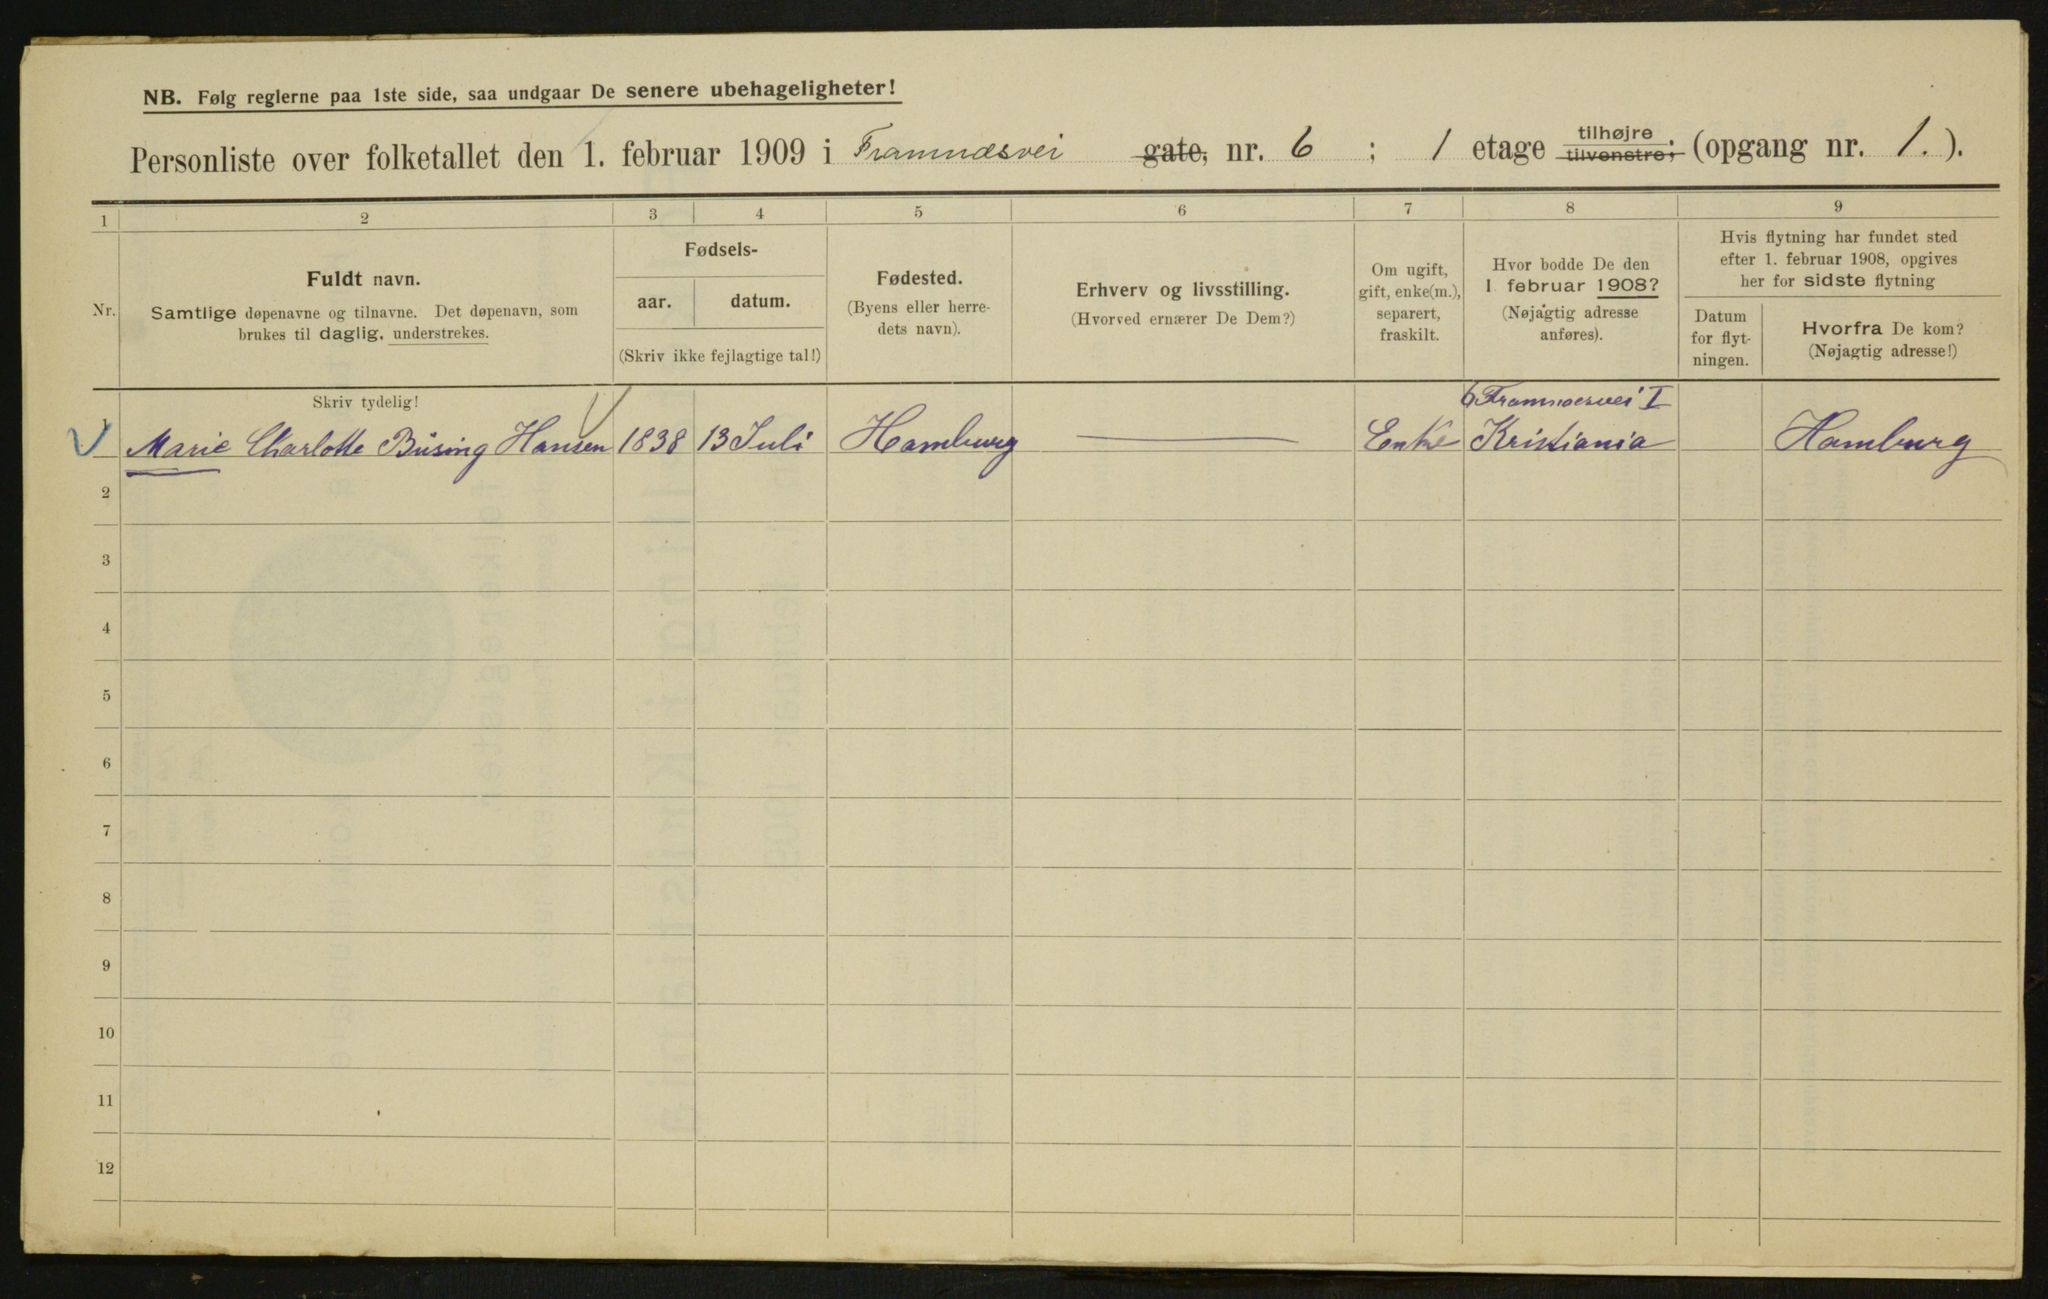 NB. Følg reglerne paa 1ste side, saa undgaar De senere ubehageligheter!
Personliste over folketallet den 1. februar 1909 i Framnæsvei gate, nr. 6 ; 1 etage tilhøjre tilvenstre; (opgang nr. 1.).
1 2 3 4 5 6 7 8 9
Nr.
Fuldt navn.
Samtlige døpenavne og tilnavne. Det døpenavn, som
brukes til daglig, understrekes.
Fødsels-
aar. datum.
(Skriv ikke fejlagtige tal!)
Fødested.
(Byens eller herre-
dets navn).
Erhverv og livsstilling.
(Hvorved ernærer De Dem?)
Om ugift,
gift, enke(m.),
separert,
fraskilt.
Hvor bodde De den
1. februar 1908?
(Nøjagtig adresse
anføres).
Hvis flytning har fundet sted
efter 1. februar 1908, opgives
her for sidste flytning
Datum
for flyt-
ningen.
Hvorfra De kom?
(Nøjagtig adresse!)
Skriv tydelig!
6 Framnæsvei I
1 Marie Charlotte Büsing Hansen 1838 13 Juli Hamburg Enke Kristiania Hamburg
2
3
4
5
6
7
8
9
10
11
12